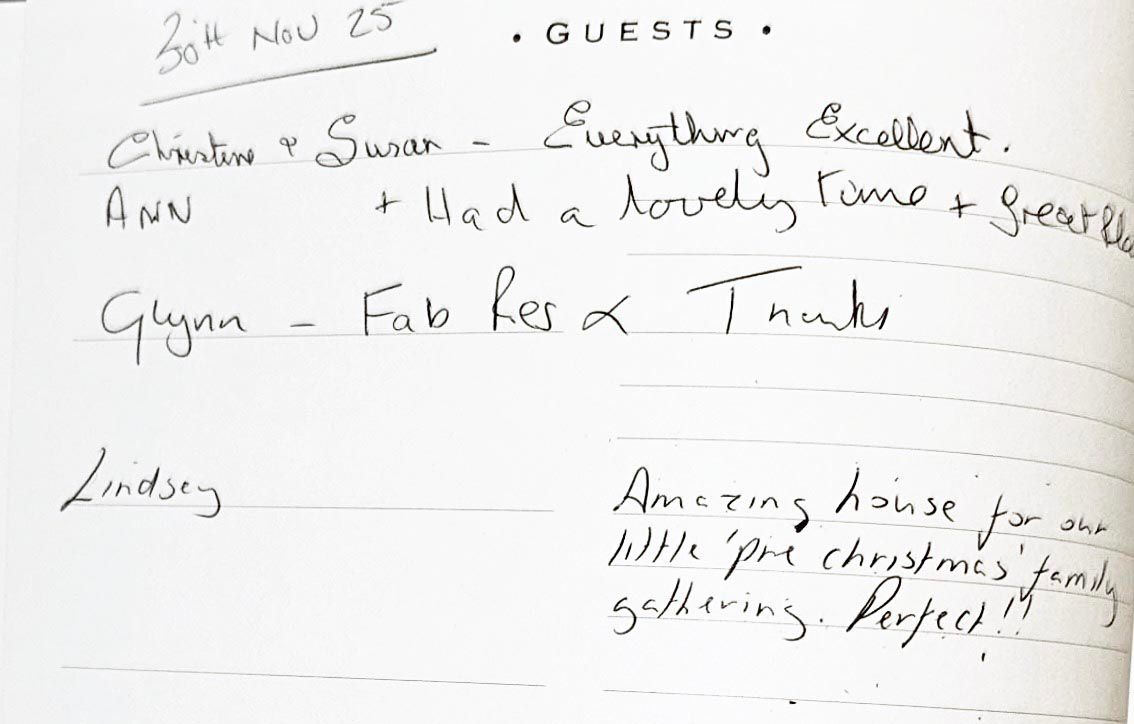 30th Nov 25
• GUESTS •
Christine & Susan - Everything Excellent.
ANN + Had a lovely time + great
Glynn - Fab Res & Thanks
Lindsey
Amazing house for our
little 'pre christmas' family
gathering. Perfect!!